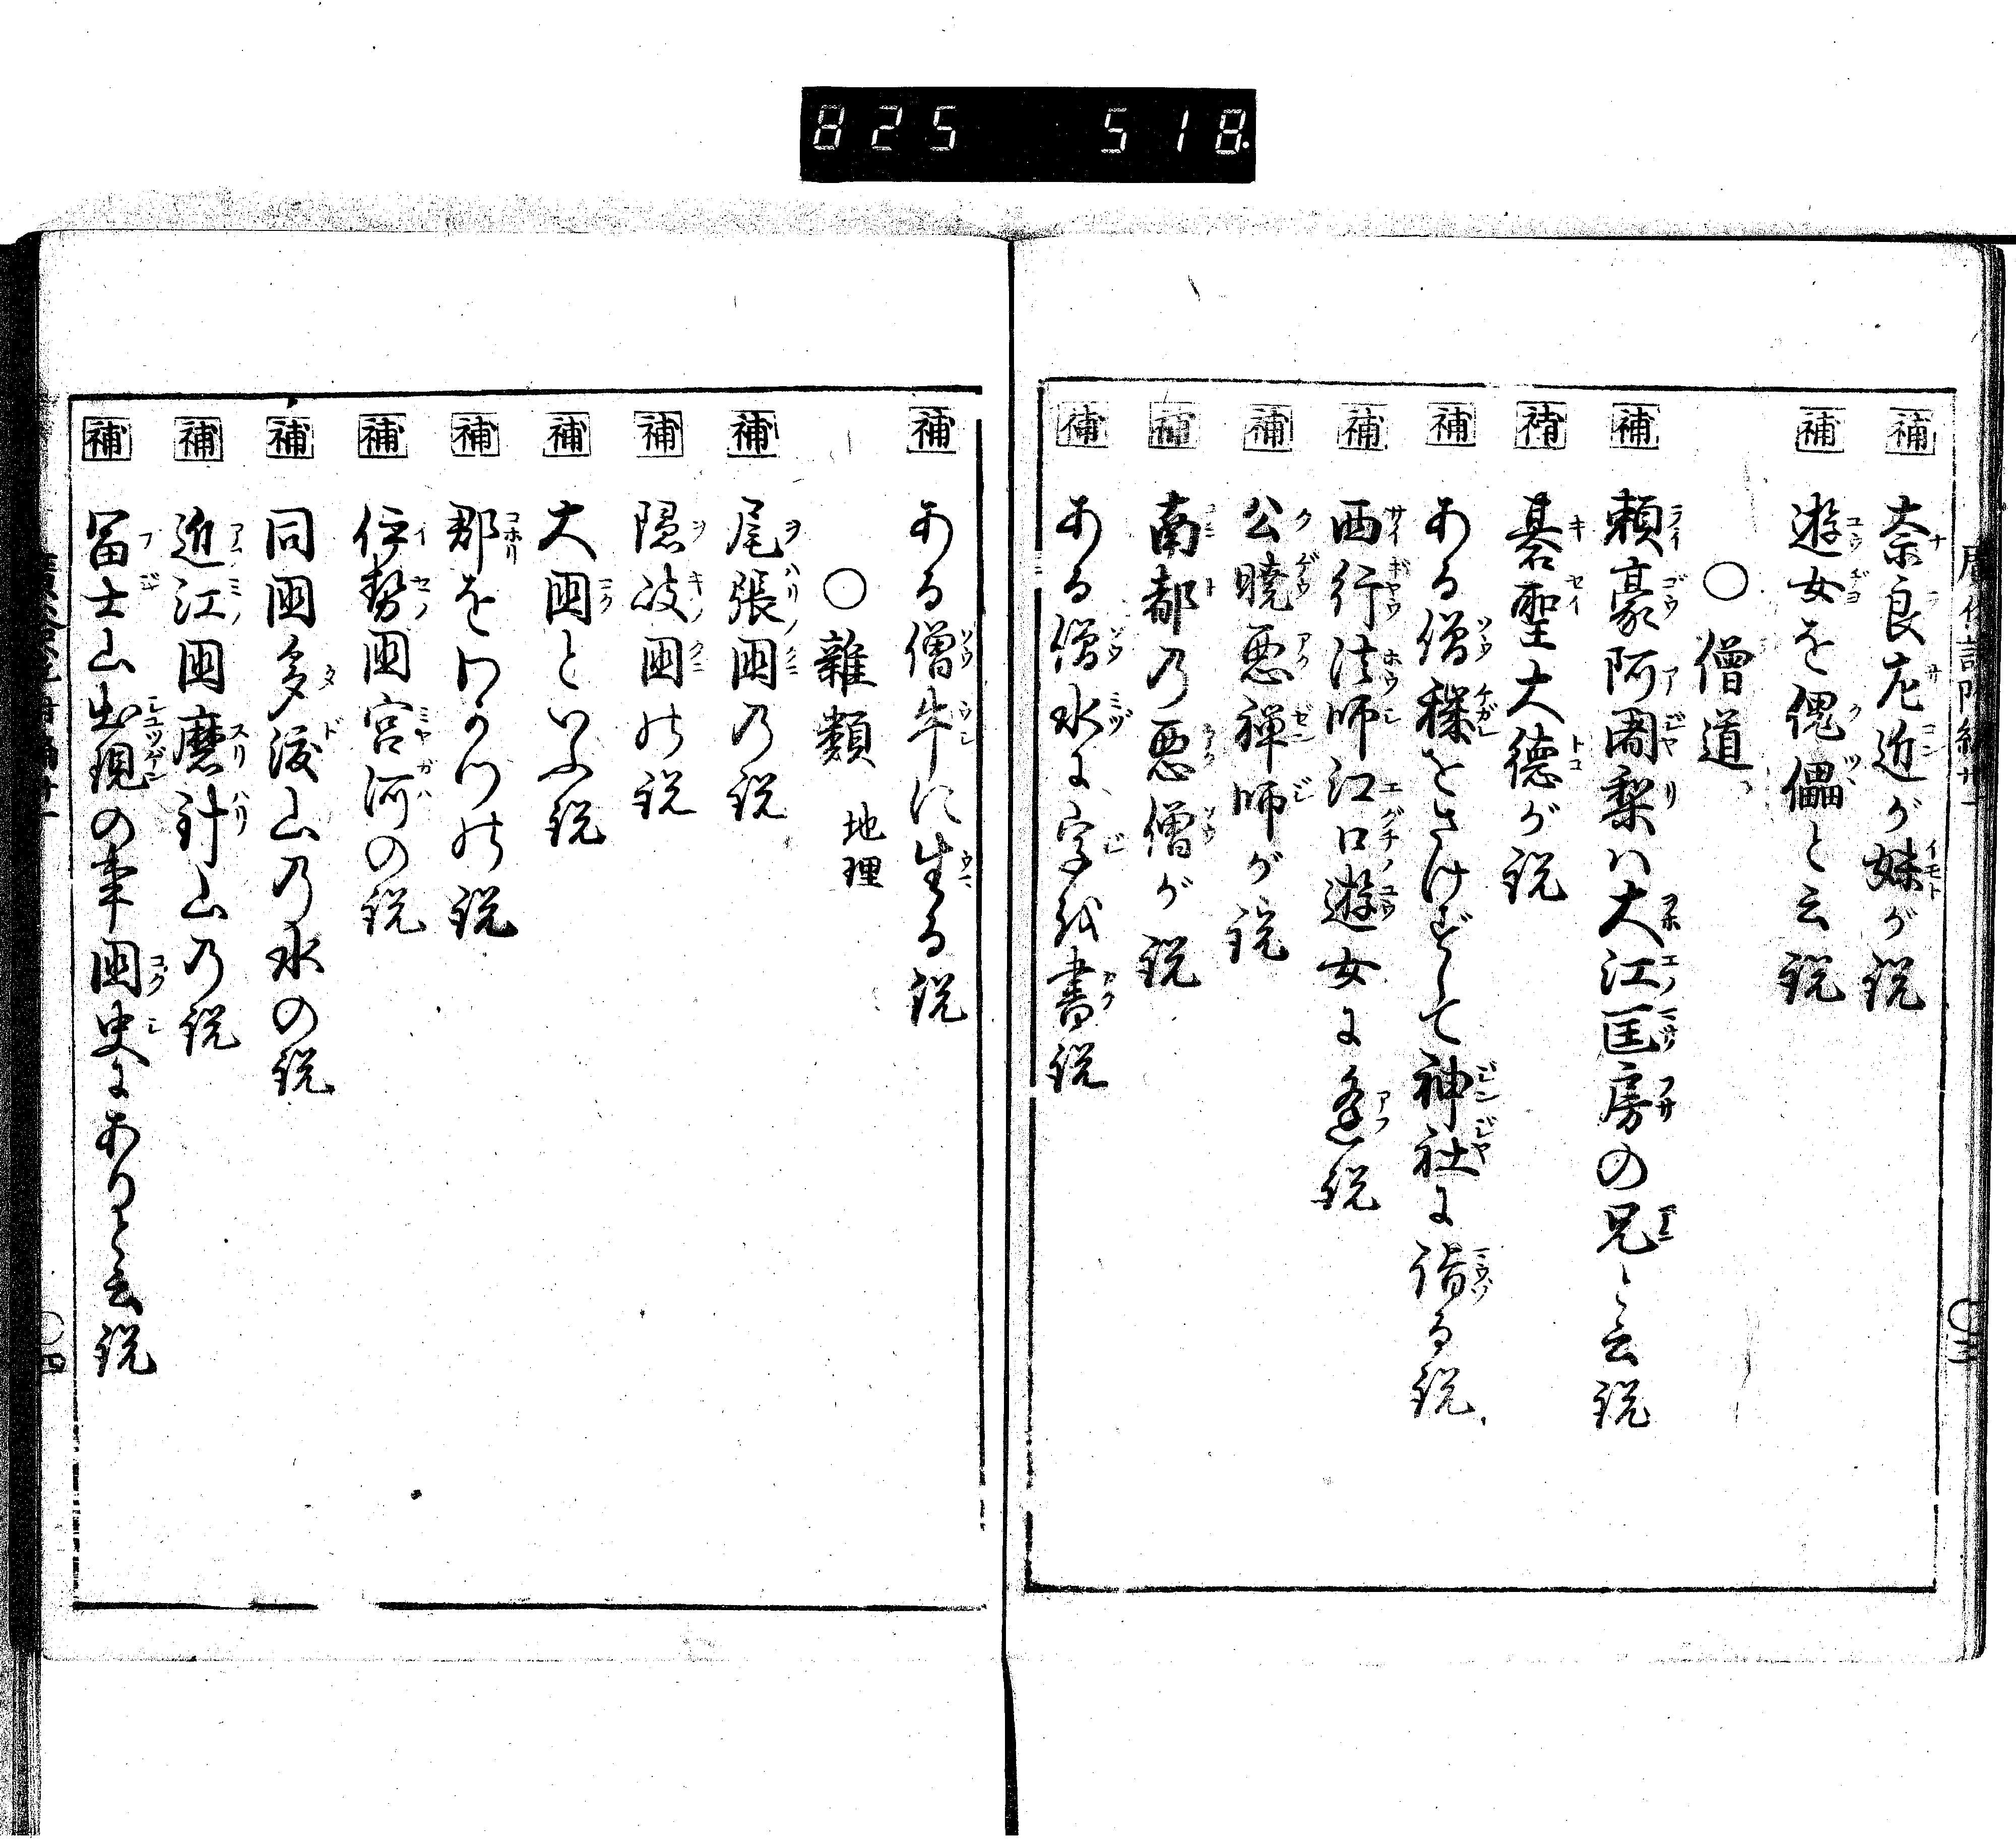 825 518
補 奈良左近が妹が説
補 遊女を傀儡と云説
○僧道
補 頼豪阿闍梨ハ大江匡房の兄と云説
補 碁聖大徳が説
補 ある僧穢をさけずして神社に詣る説
補 西行法師江口遊女に逢説
補 公暁悪禅師が説
補 南都乃悪僧が説
補 ある僧水に字を書説
補 ある僧牛に生る説
○雑類 地理
補 尾張国乃説
補 隠岐国の説
補 大国といふ説
補 郡をわかつの説
補 伊勢国宮河の説
補 同国多度山乃水の説
補 近江国磨針山乃説
補 冨士山出現の事国史にありと云説